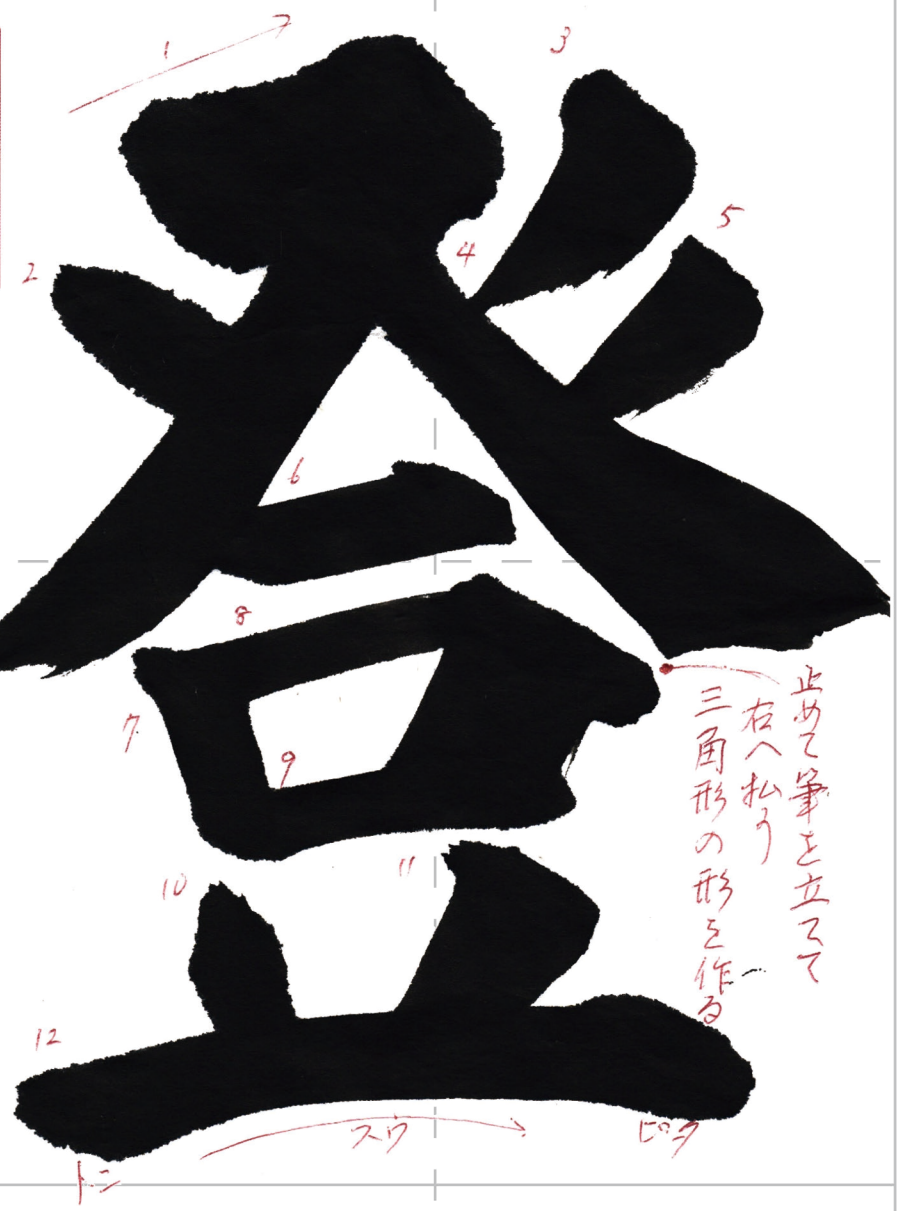 登
1
2
3
4
5
6
7
8
9
10
11
12
止めて筆を立てて
右へ払う
三角形の形を作る
トン
スウ
ピタ